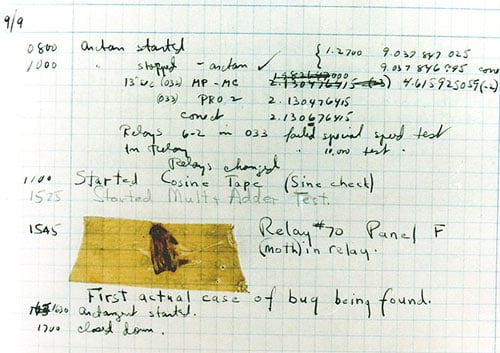 9/9
0800 antan started { 1.2700 9.037 847 025
1000 " stopped - antan ✓ 9.037 846 995
13"uc (033) MP-MC 2.130476415 (-3) 4.615925059(-2)
(033) PRO 2 2.130476415
conect 2.130676415
Relays 6-2 in 033 failed special speed test
In Relay " 10,000 test .
Relays changed
1100 Started Cosine Tape (Sine check)
1525 Started Mult + Adder Test.
1545 Relay #70 Panel F
(moth) in relay.
First actual case of bug being found.
1630 antangent started.
1700 closed down.